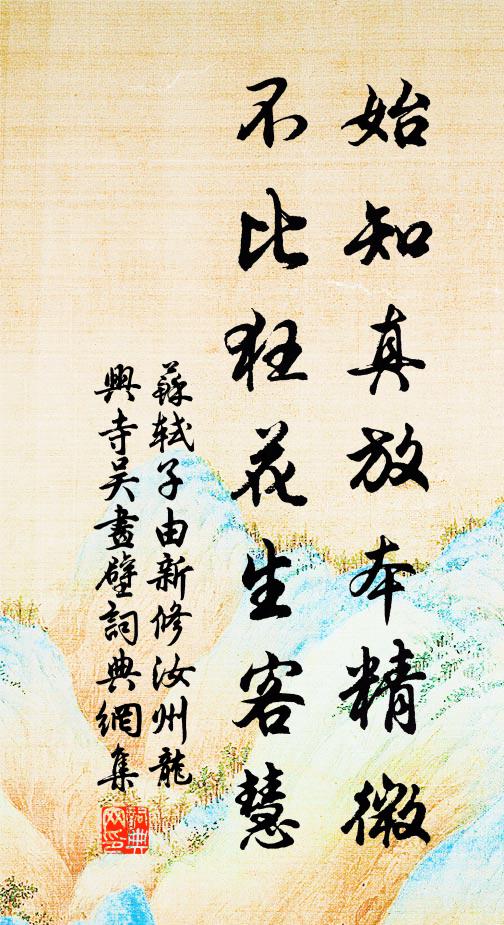 始知真放本精微
不比狂花生客慧
蘇軾子由新修汝州龍
興寺吴畫壁詞典網集
詞典
网印